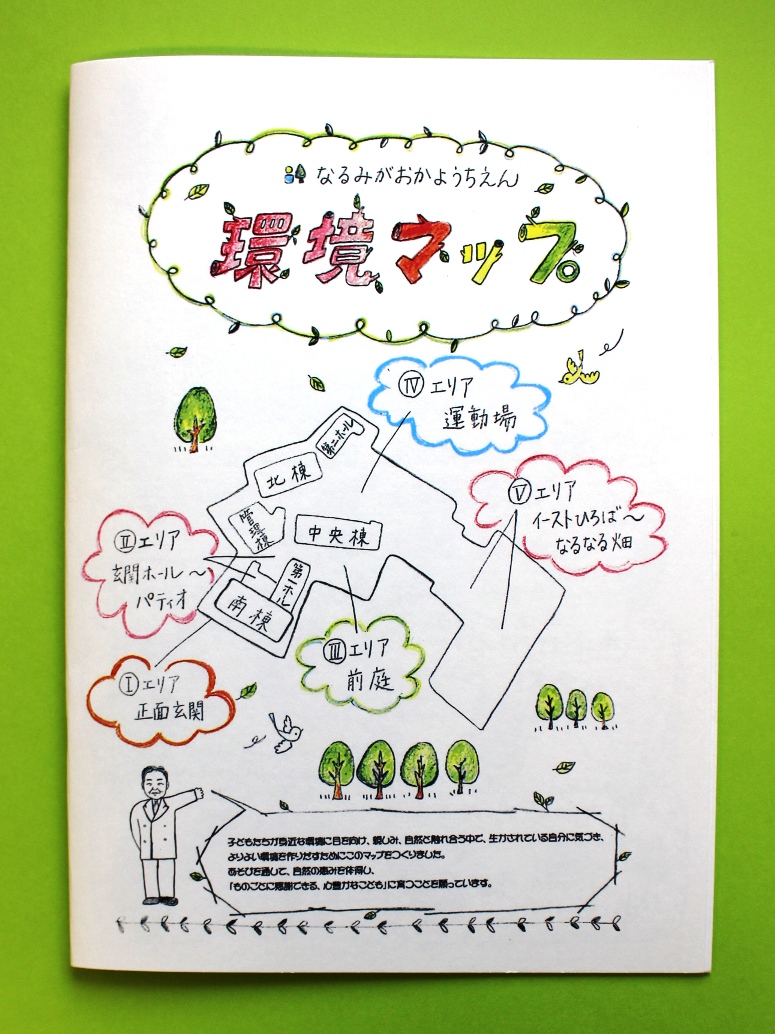 なるみがおかようちえん
環境マップ
Ⅳ エリア
運動場
第二ホール
北棟
Ⅴ エリア
イーストひろば～
なるなる畑
管理棟
中央棟
Ⅱ エリア
玄関ホール～
パティオ
第一ホール
南棟
Ⅲ エリア
前庭
Ⅰ エリア
正面玄関
子どもたちが身近な環境に目を向け、親しみ、自然と触れ合う中で、生かされている自分に気づき、
よりよい環境を作りだすためにこのマップをつくりました。
あそびを通して、自然の恵みを体得し、
「ものごとに感謝できる、心豊かなこども」に育つことを願っています。